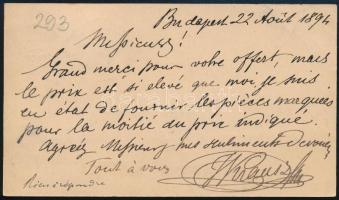 293
Budapest 22 Août 1894
Messieurs!
Grand merci pour votre offert, mais
le prix est si élevé que moi, je suis
en état de fournir les pièces marquées
pour la moitié du prix indiqué.
Agréez Messieurs mes sentiments dévoués
Tout à vous
Rien à répondre